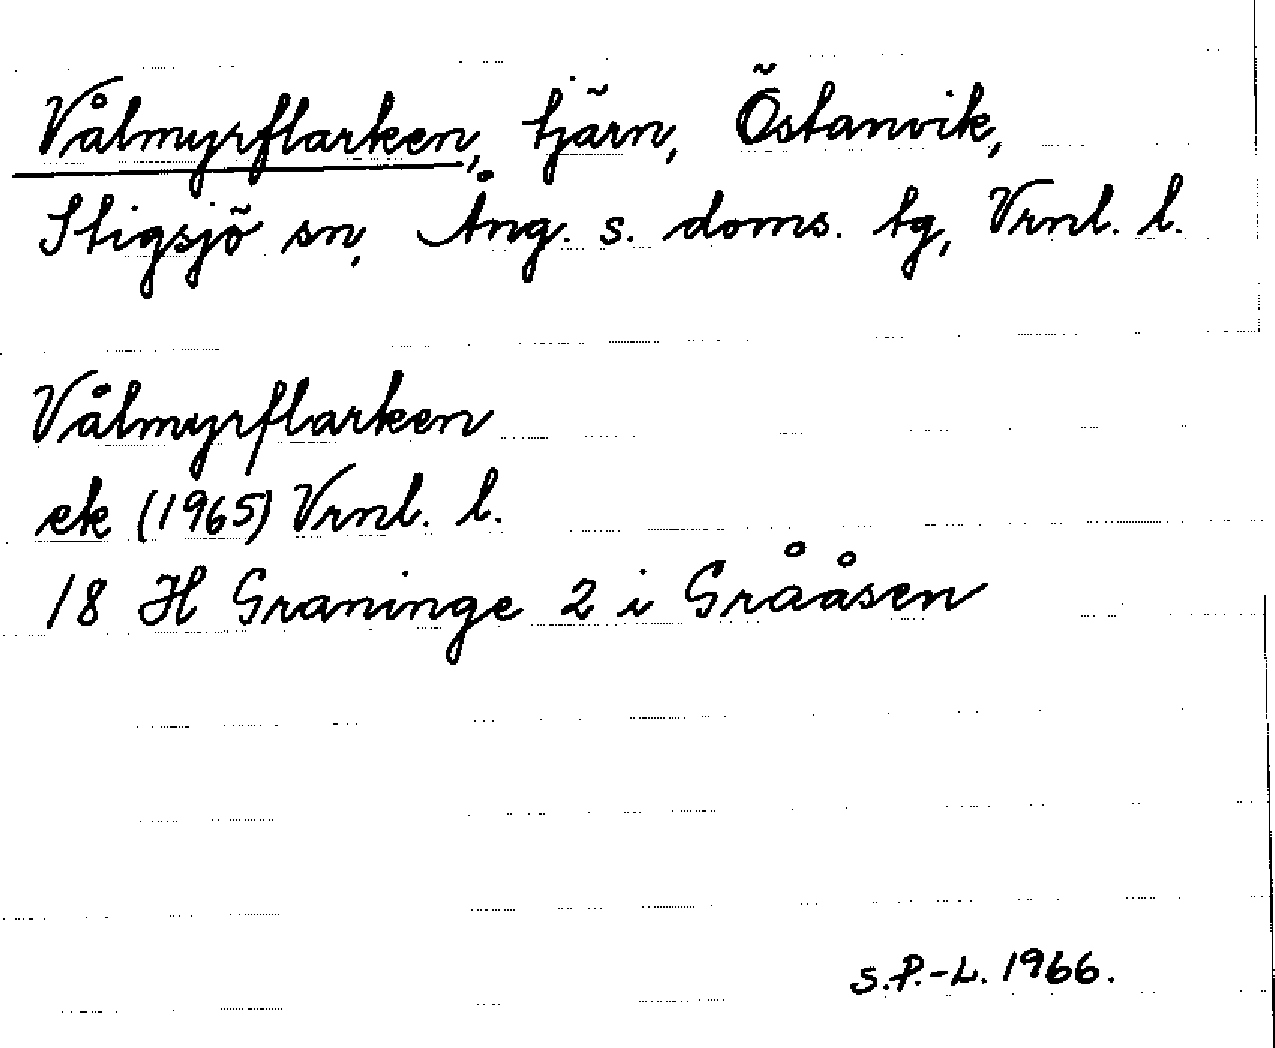 Vålmyrflarken, tjärn, Östanvik,
Stigsjö sn, Ång. s. doms. tg, Vrnl. l.
Vålmyrflarken
ek (1965) Vrnl. l.
18 H Graninge 2 i Grååsen
S.P.-L. 1966.